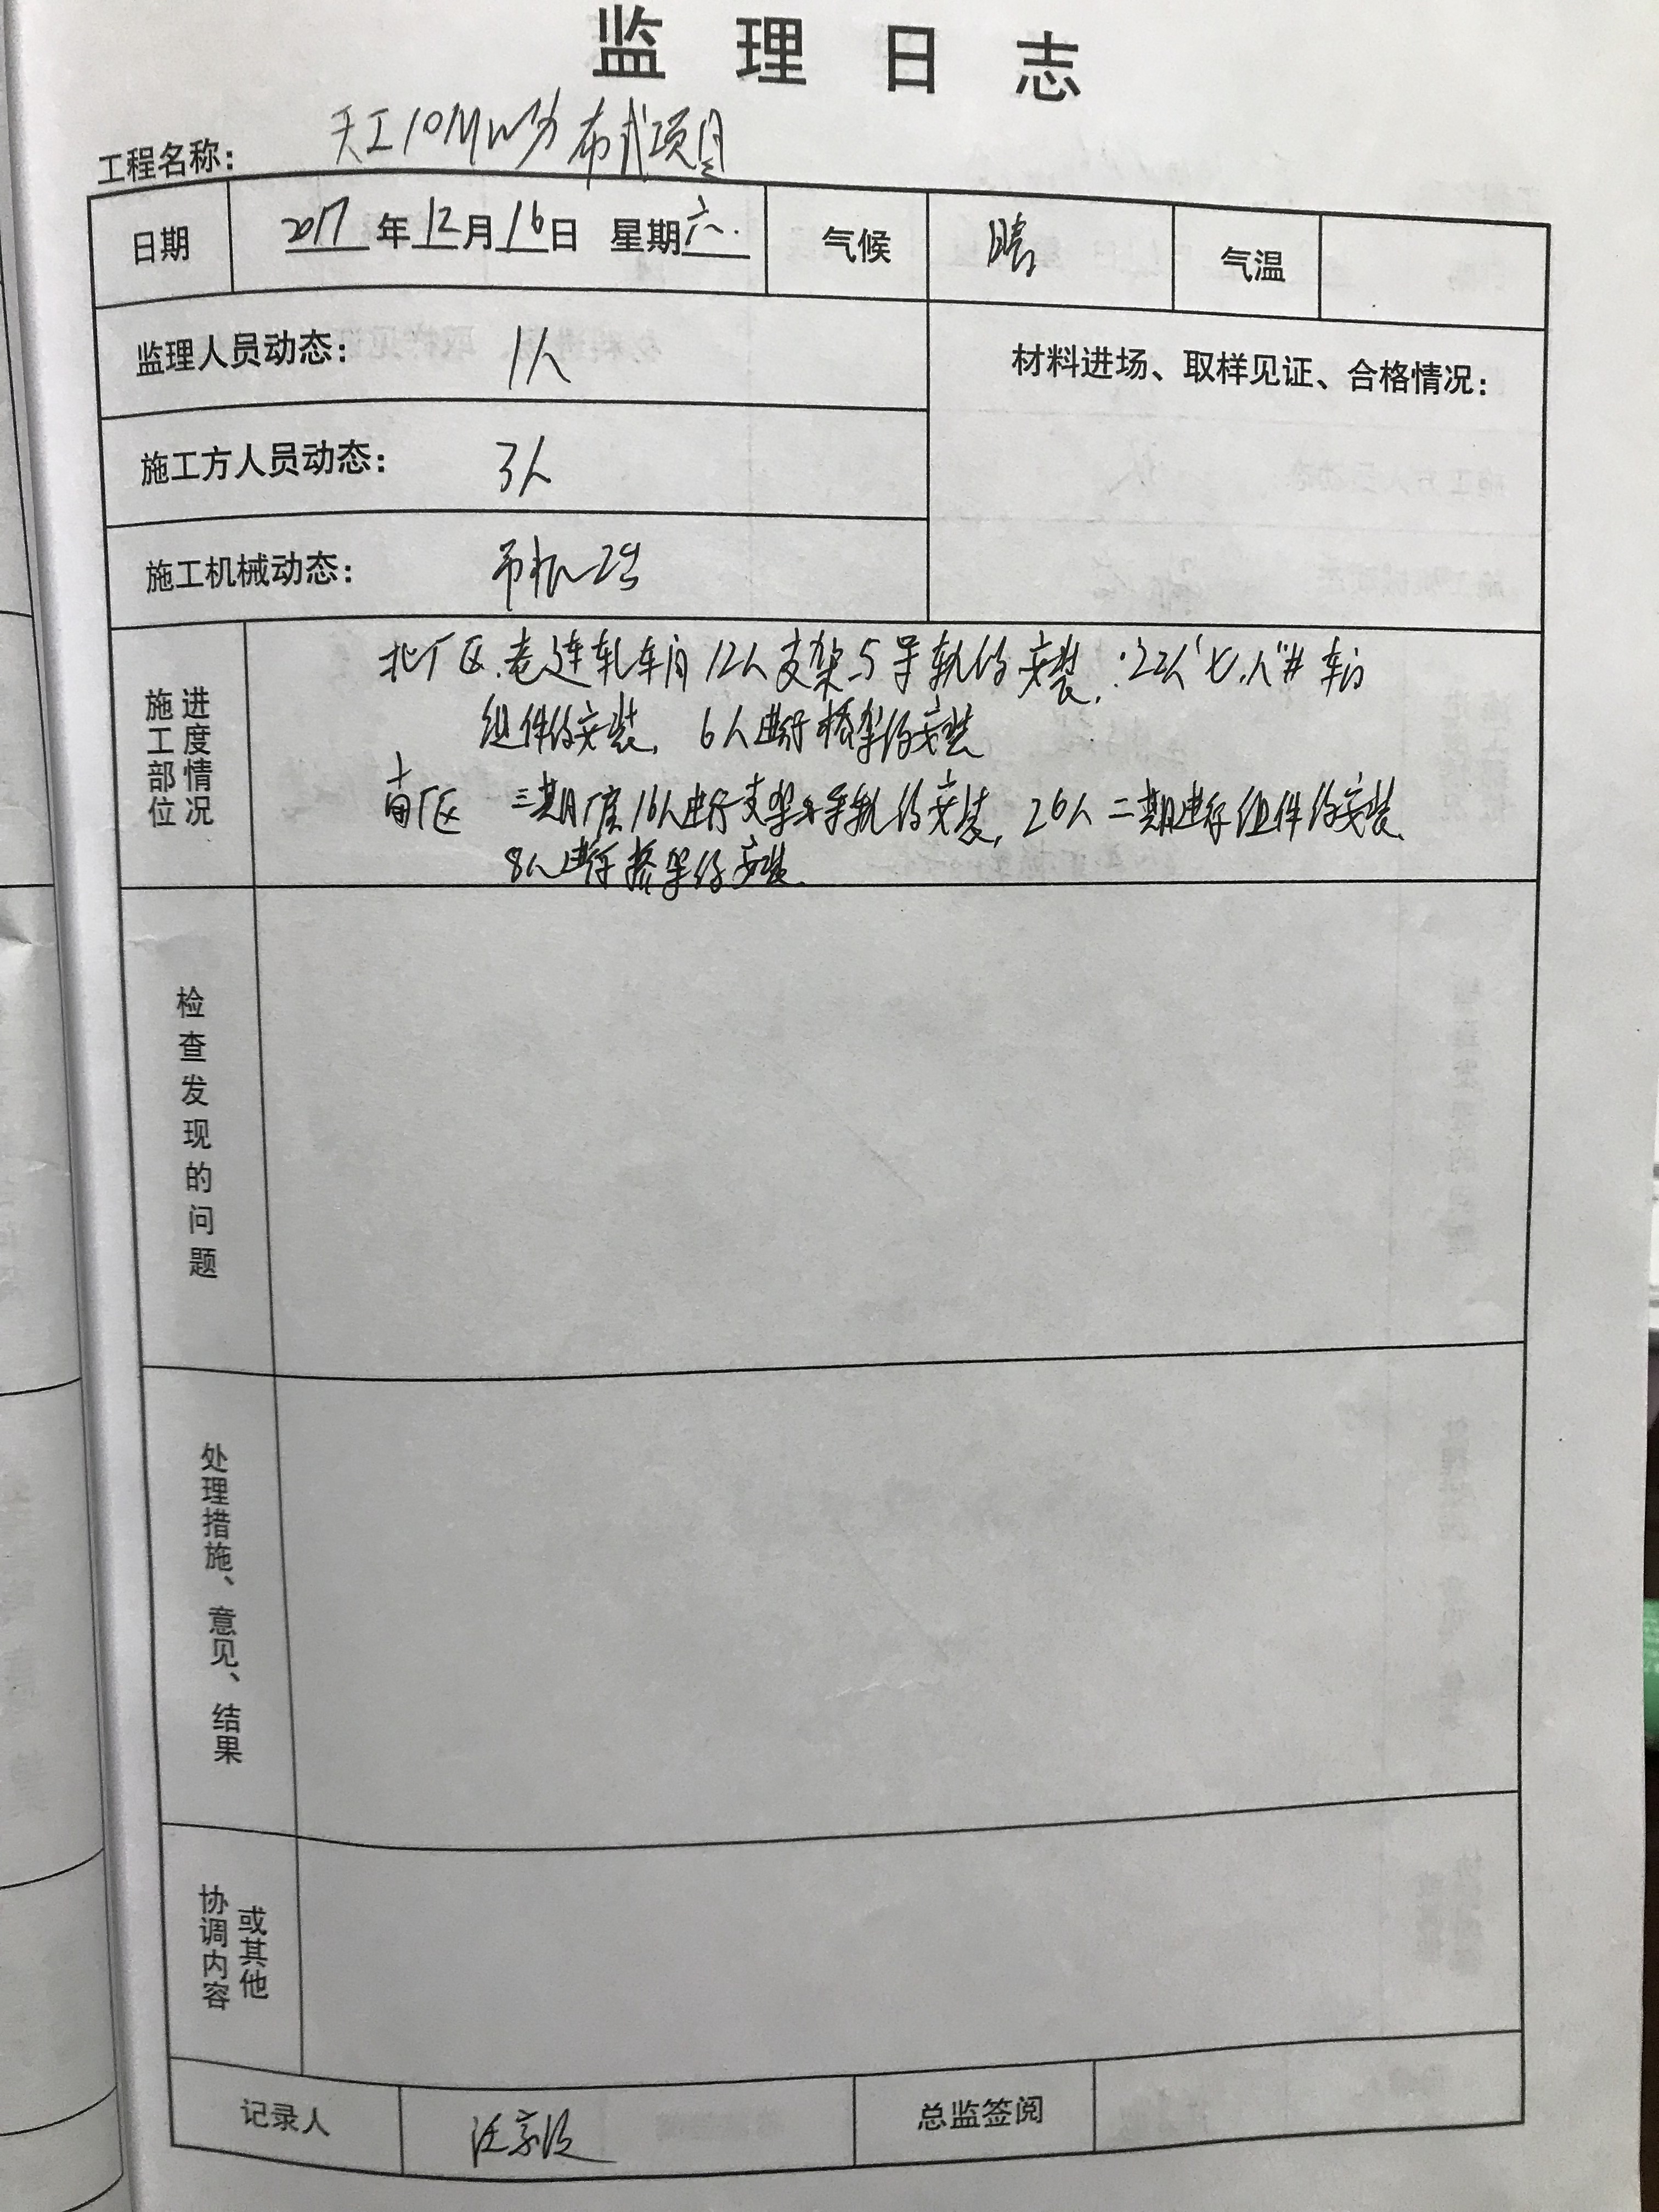 监理日志
工程名称: 天工10MW分布式项目
日期 2017年12月16日 星期六. 气候 晴 气温
监理人员动态: 1人 材料进场、取样见证、合格情况:
施工方人员动态: 3人
施工机械动态: 吊机2台
施工部位 进度情况
北厂区.老连轧车间12人支架与导轨的安装, 22人 车间
组件的安装, 6人进行桥架的安装
南厂区 三期厂房16人进行支架与导轨的安装, 26人二期进行组件的安装
8人进行桥架的安装.
检查发现的问题
处理措施、意见、结果
协调内容 或其他
记录人 总监签阅